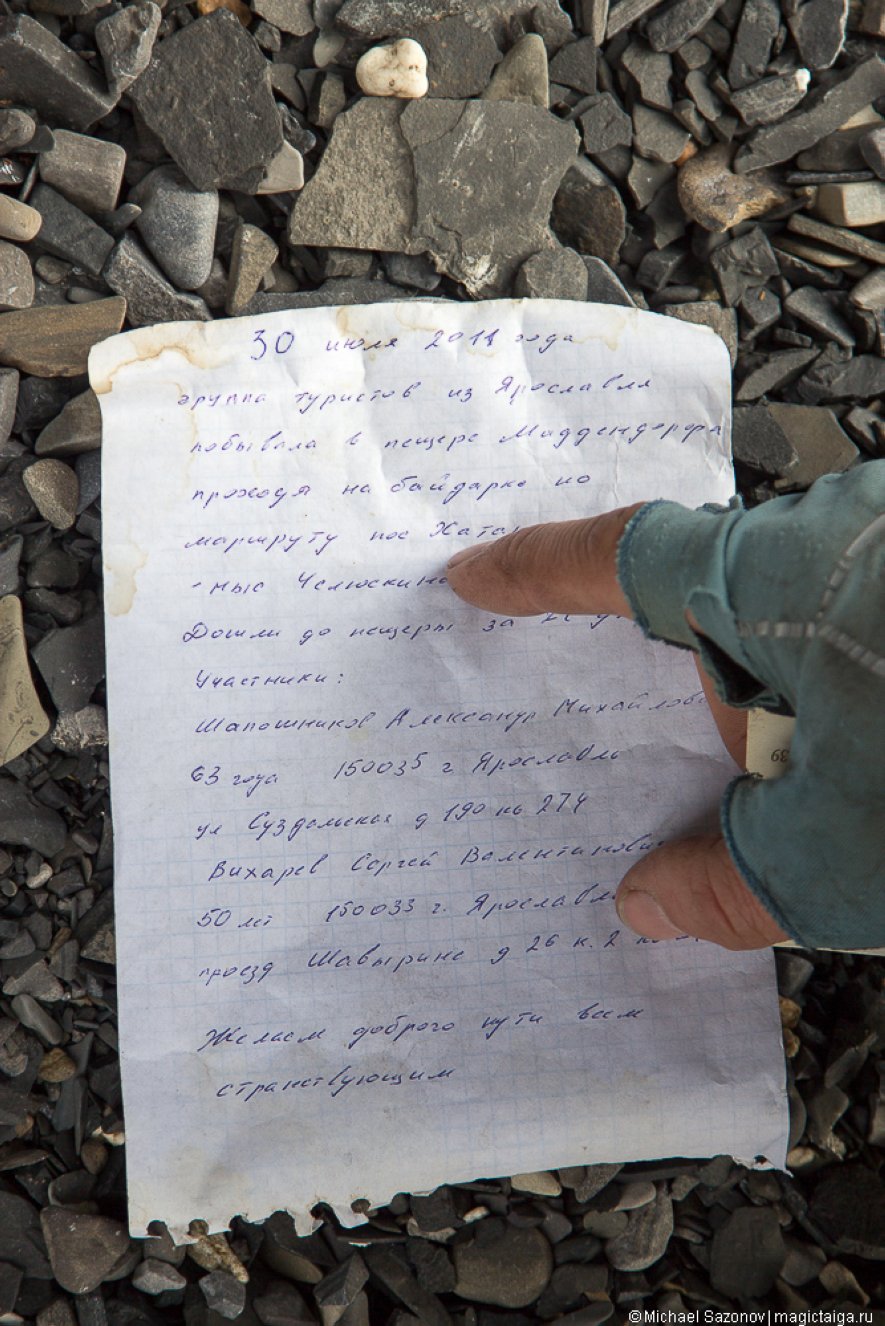 30 июля 2011 года
группа туристов из Ярославля
побывала в пещере Миддендорфа
проходя на байдарке по
маршруту пос Хатан
- мыс Челюскина
Дошли до пещеры за
Участники:
Шапошников Александр Михайлов
63 года 150035 г Ярославль
ул Суздальская д 190 кв 274
Вихарев Сергей Валентинович
50 лет 150033 г. Ярославль
проезд Шавырина д 26 к. 2
Желаем доброго пути всем
странствующим
39
©Michael Sazonov| magictaiga.ru